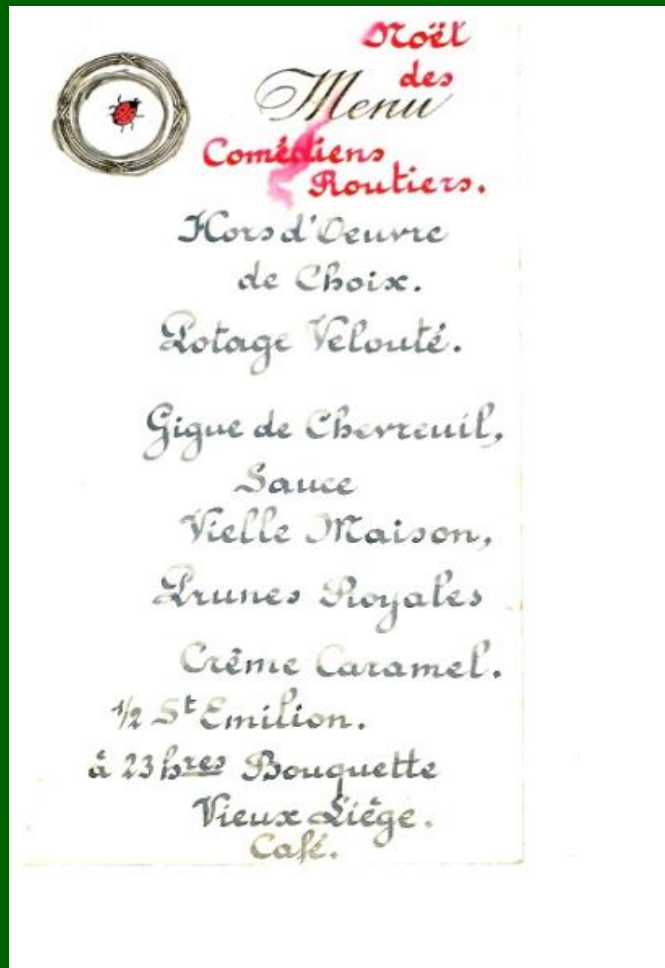 Noël
des
Menu
Comédiens
Routiers.
Hors d'Oeuvre
de Choix.
Potage Velouté.
Gigue de Chevreuil,
Sauce
Vielle Maison,
Prunes Royales
Crême Caramel.
1/2 St Emilion.
à 23 hres Bouquette
Vieux Liège.
Café.